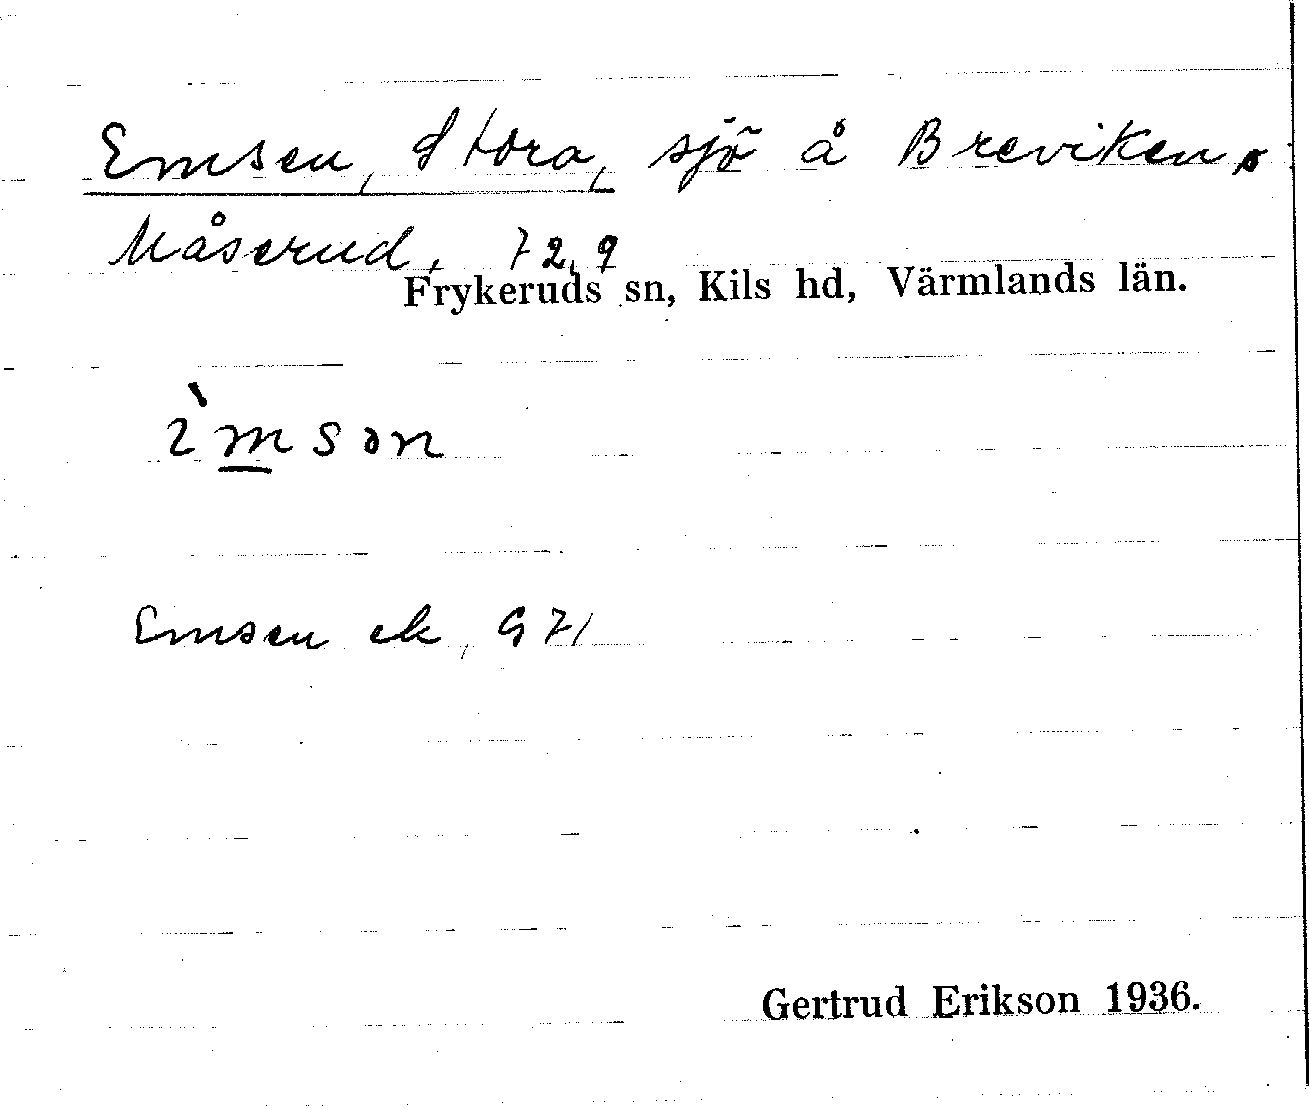 Emsen, Stora, sjö å Breviken,
Måserud, 72,9
Frykeruds sn, Kils hd, Värmlands län.
ìmsən
Emsen ek, G 71
Gertrud Erikson 1936.